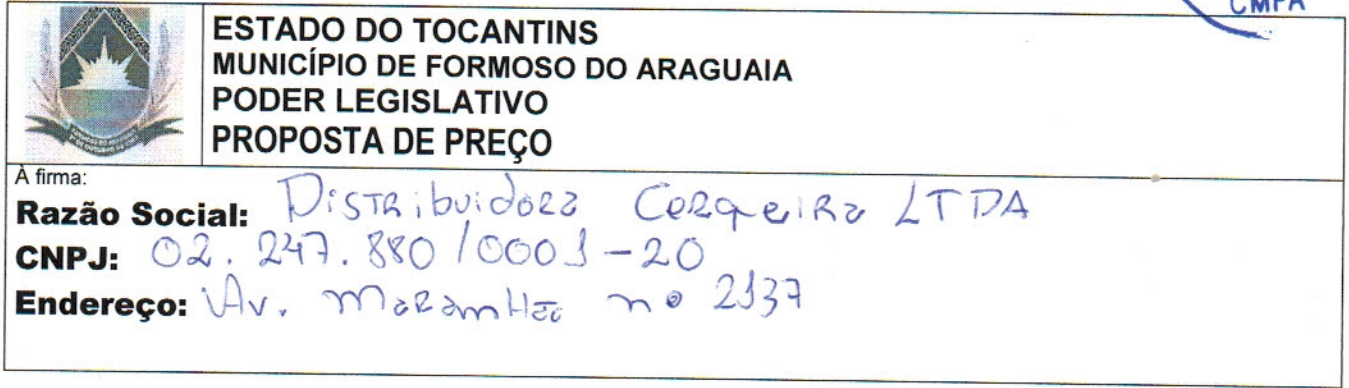 CMFA
ESTADO DO TOCANTINS
MUNICÍPIO DE FORMOSO DO ARAGUAIA
PODER LEGISLATIVO
PROPOSTA DE PREÇO
À firma:
Razão Social: Distribuidora Cerqeira LTDA
CNPJ: 02.247.880/0001-20
Endereço: Av. Maranhão nº 2137